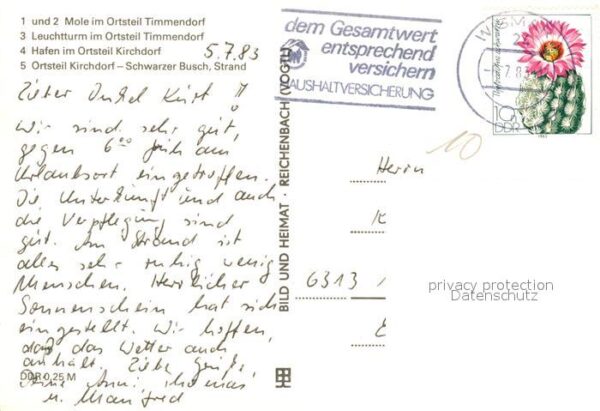 1 und 2 Mole im Ortsteil Timmendorf
3 Leuchtturm im Ortsteil Timmendorf
4 Hafen im Ortsteil Kirchdorf
5 Ortsteil Kirchdorf – Schwarzer Busch, Strand
5.7.83
Lieber Onkel Kurt!
Wir sind sehr gut,
gegen 6⁰⁰ früh am
Urlaubsort eingetroffen.
Die Unterkunft und auch
die Verpflegung sind
gut. Am Strand ist
alles sehr ruhig wenig
Menschen. Herrlicher
Sonnenschein hat sich
eingestellt. Wir hoffen,
daß das Wetter auch
anhält. Liebe Grüße
u. Manfred
DDR 0,25 M
BILD UND HEIMAT · REICHENBACH (VOGTL)
dem Gesamtwert
entsprechend
versichern
HAUSHALTVERSICHERUNG
WISMA
7.83
10
DDR
10
Herrn
K
6313
privacy protection
Datenschutz